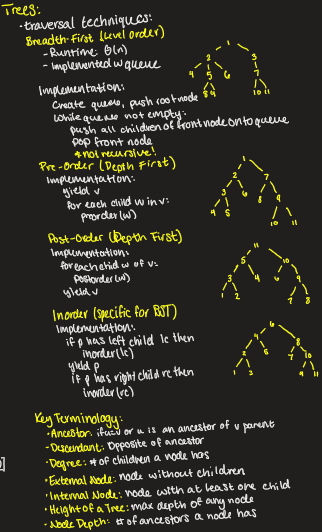 Trees:
-traversal techniques:
Breadth-First (Level order)
- Runtime: Θ(n)
- Implemented w queue
Implementation:
Create queue, push root node
While queue not empty:
push all children of front node onto queue
pop front node
*not recursive!
1
2 3
4 5 6 7
8 9 10 11
Pre-Order (Depth First)
Implementation:
yield v
for each child w in v:
preorder(w)
1
2 7
3 6 8 9
4 5 10 11
Post-Order (Depth First)
Implementation:
for each child w of v:
postorder(w)
yield v
11
5 10
3 4 6 9
1 2 7 8
Inorder (specific for BST)
Implementation:
if p has left child lc then
inorder(lc)
yield p
if p has right child rc then
inorder(rc)
6
4 8
2 5 7 10
1 3 9 11
Key Terminology:
• Ancestor: if u=v or u is an ancestor of v parent
- Descendant: Opposite of ancestor
• Degree: # of children a node has
• External Node: node without children
• Internal Node: node with at least one child
• Height of a Tree: max depth of any node
• Node Depth: # of ancestors a node has